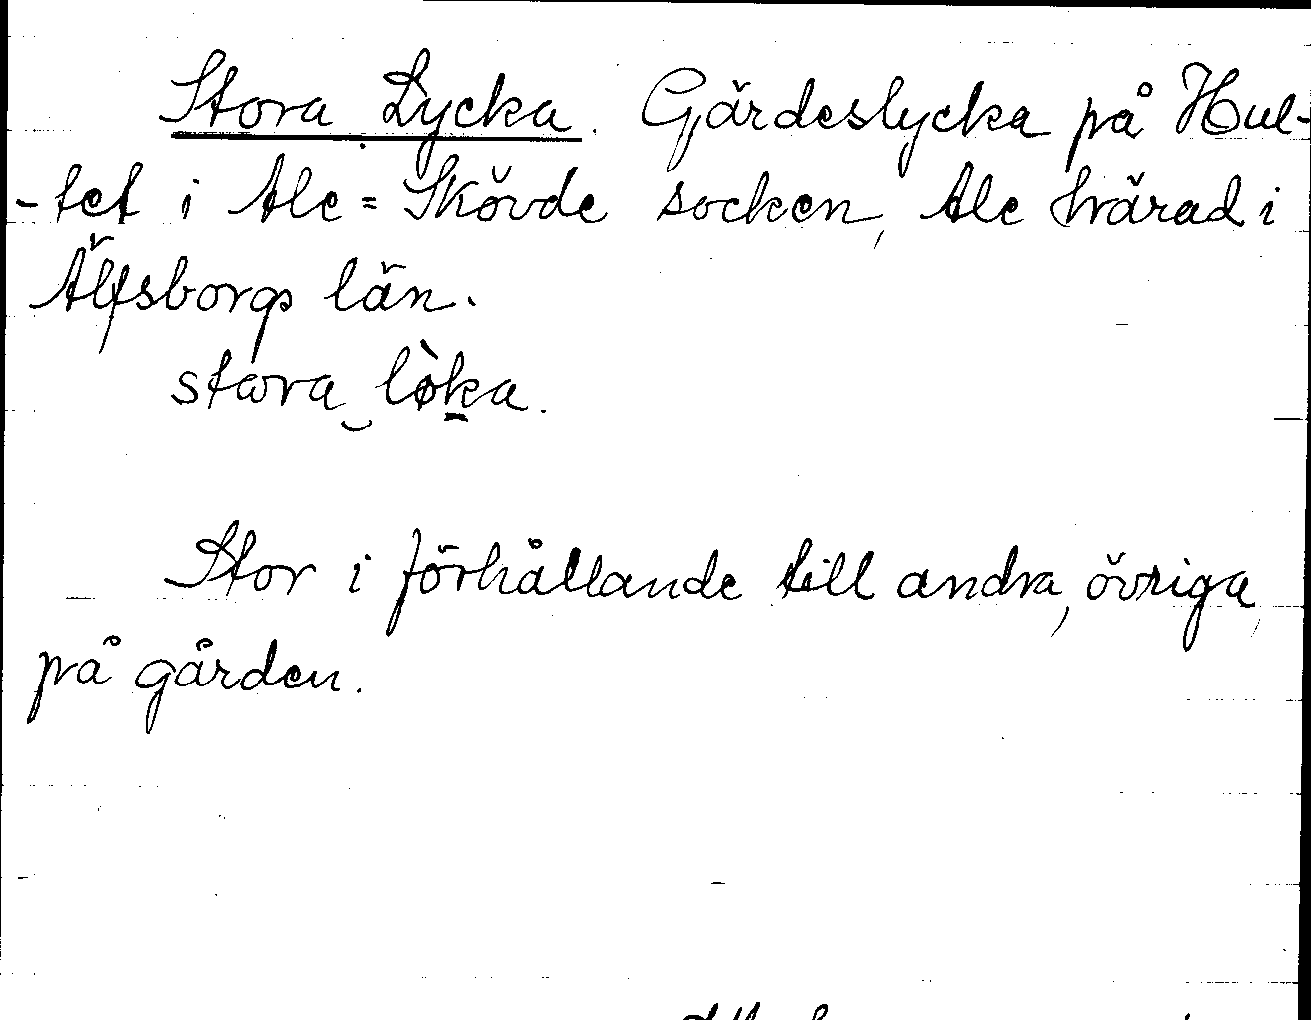 Stora Lycka. Gärdeslycka på Hul-
-tet i Ale=Skövde socken, Ale härad i
Älfsborgs län.
stora löka.
Stor i förhållande till andra, övriga,
på gården.